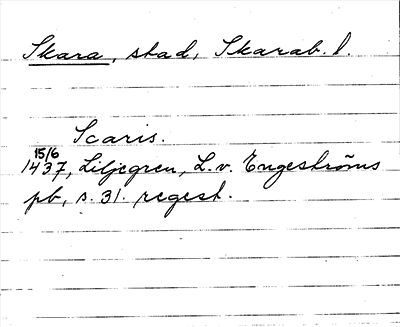 Skara, stad, Skarab. l.
Scaris.
15/6
1437, Liljegren, L. v. Engeströms
pb, s. 31. regest.